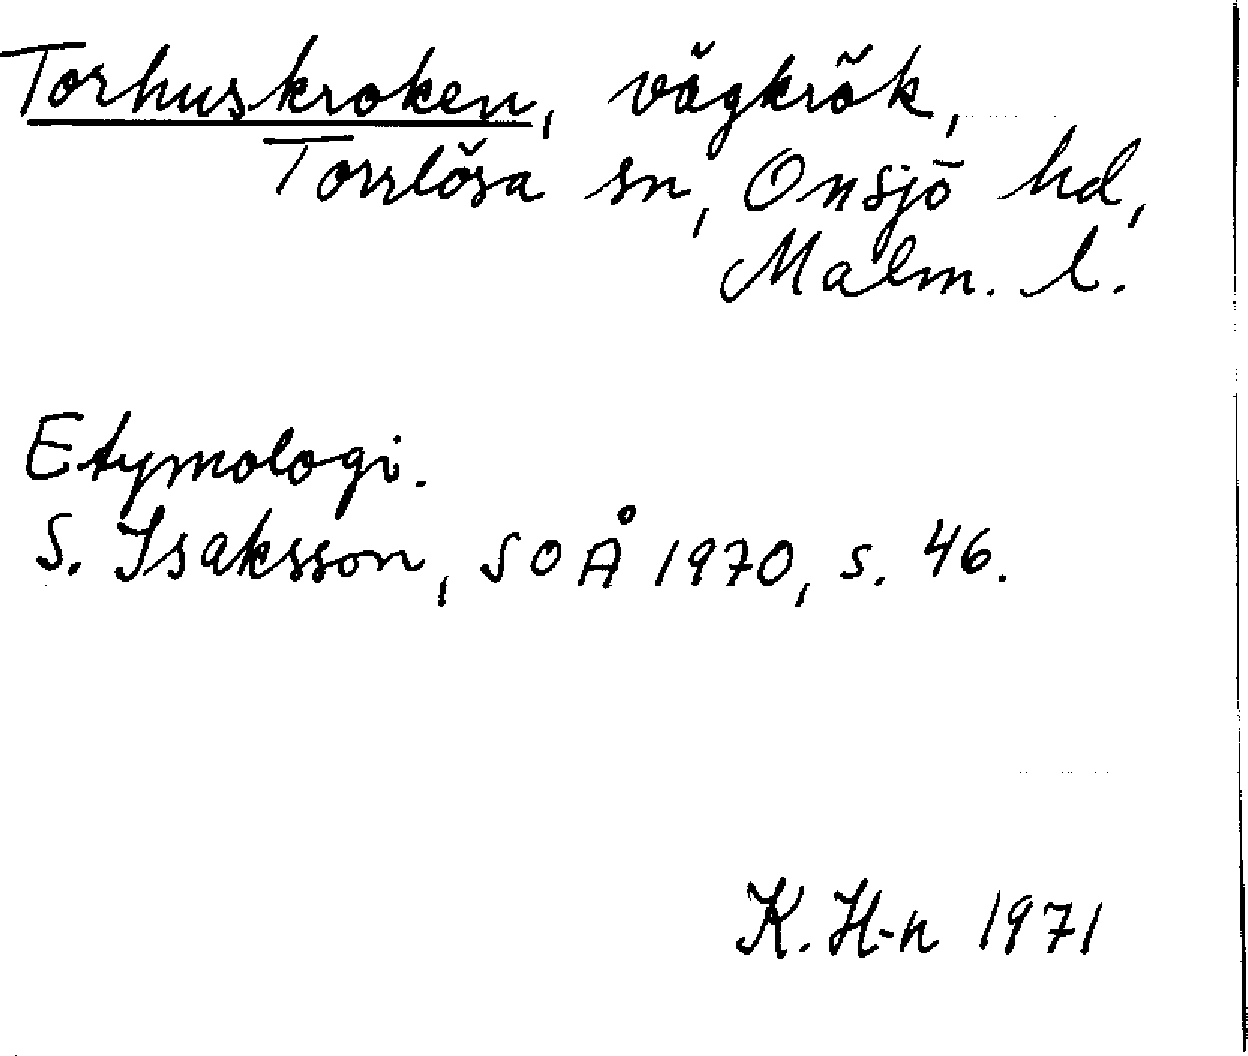 Torhuskroken, vägkrök,
Torrlösa sn, Onsjö hd,
Malm. l.
Etymologi.
S. Isaksson, SOÅ 1970, s. 46.
K. H-n 1971